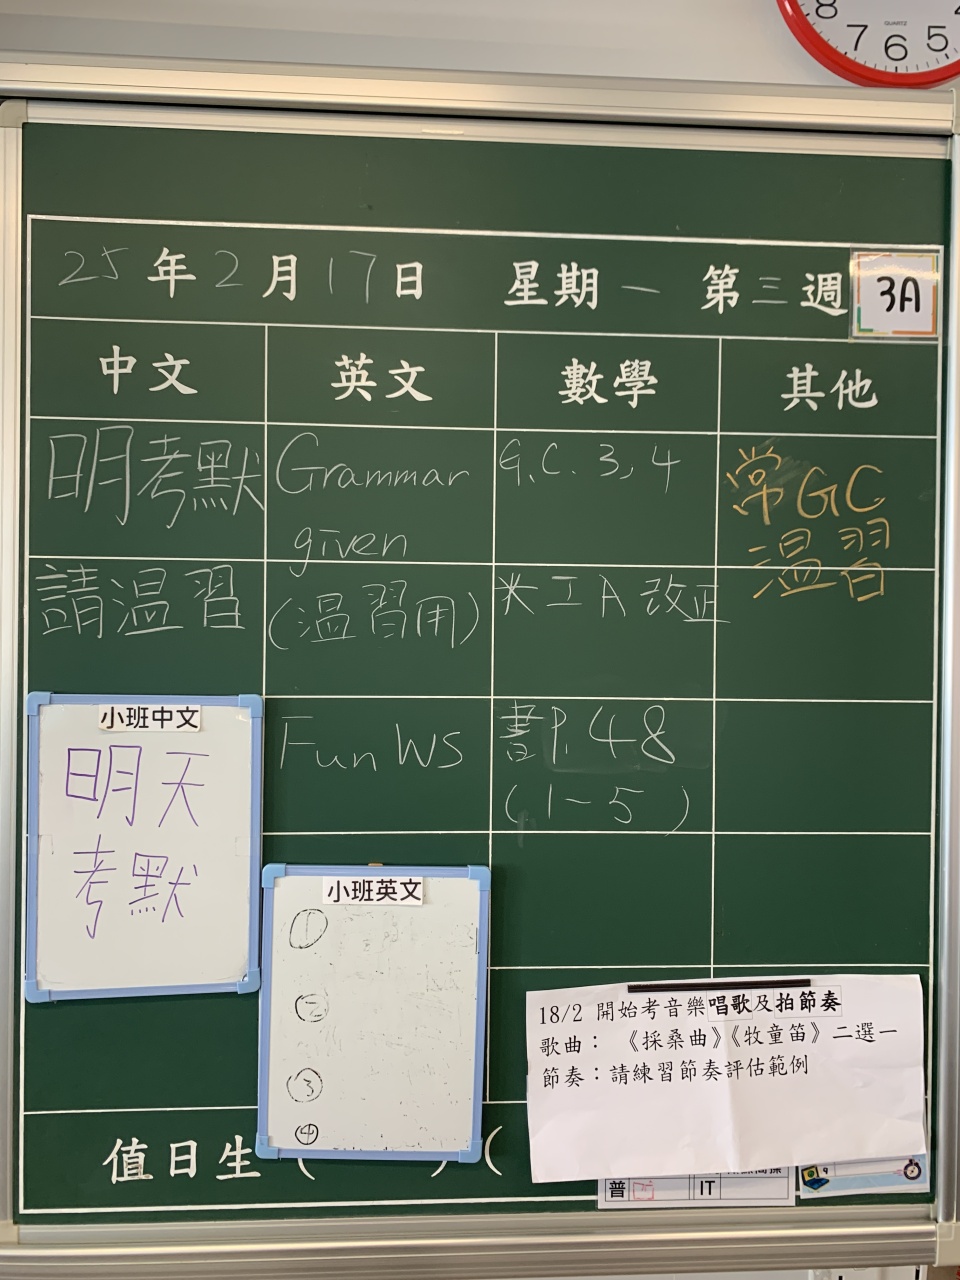 8 7 6 5
QUARTZ
25年2月17日 星期一 第三週 3A
中文 英文 數學 其他
明考默
請温習
Grammar
given
(温習用)
Fun WS
G.C. 3, 4
米工A 改正
書P. 48
(1-5)
常GC
温習
小班中文
明天
考默
小班英文
①
②
③
④
18/2 開始考音樂唱歌及拍節奏
歌曲：《採桑曲》《牧童笛》二選一
節奏：請練習節奏評估範例
值日生 ( ) (
普 IT